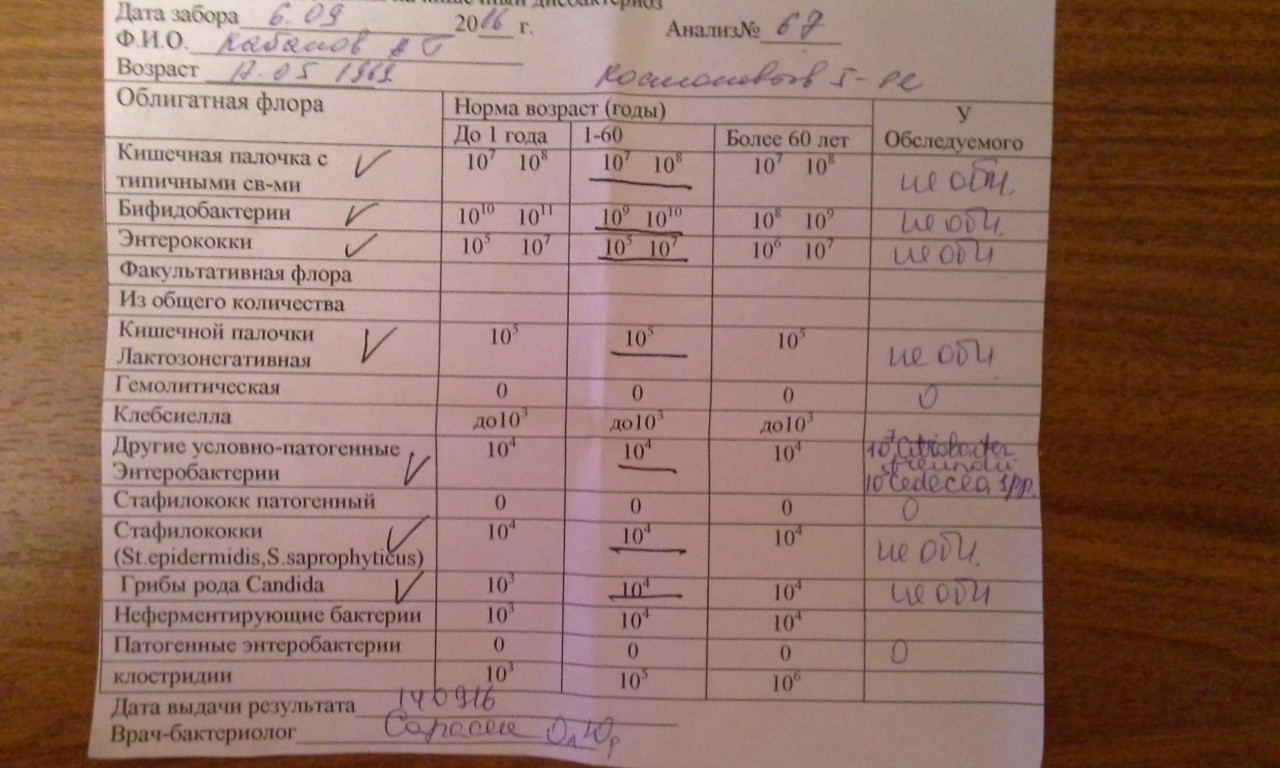 на кишечный дисбактериоз
Дата забора 6.09 2016 г. Анализ№ 67
Ф.И.О.
Возраст 1969.
Облигатная флора Норма возраст (годы) У Обследуемого
До 1 года 1-60 Более 60 лет
Кишечная палочка с типичными св-ми 10⁷ 10⁸ 10⁷ 10⁸ 10⁷ 10⁸ не обн.
Бифидобактерии 10¹⁰ 10¹¹ 10⁹ 10¹⁰ 10⁸ 10⁹ не обн.
Энтерококки 10⁵ 10⁷ 10⁵ 10⁷ 10⁶ 10⁷ не обн
Факультативная флора
Из общего количества
Кишечной палочки Лактозонегативная 10⁵ 10⁵ 10⁵ не обн
Гемолитическая 0 0 0 0
Клебсиелла до10³ до10³ до10³
Другие условно-патогенные Энтеробактерии 10⁴ 10⁴ 10⁴ 10⁷ Citrobacter freundii 10 Cedecea spp.
Стафилококк патогенный 0 0 0 0
Стафилококки (St.epidermidis,S.saprophyticus) 10⁴ 10⁴ 10⁴ не обн.
Грибы рода Candida 10³ 10⁴ 10⁴ не обн
Неферментирующие бактерии 10³ 10⁴ 10⁴
Патогенные энтеробактерии 0 0 0 0
клостридии 10³ 10⁵ 10⁶
Дата выдачи результата 140916
Врач-бактериолог